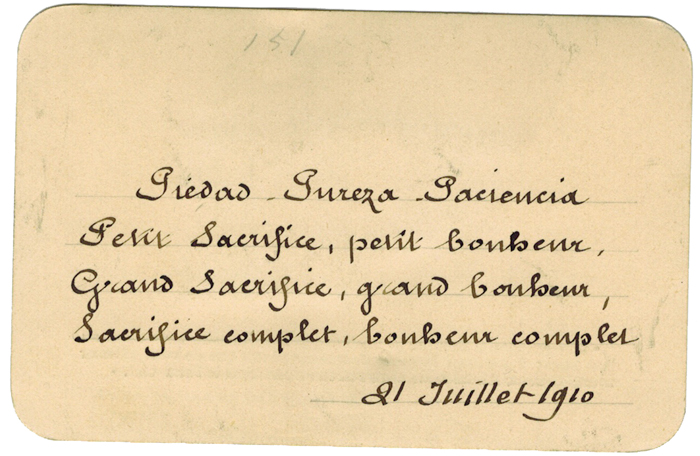 151
Piedad - Pureza - Paciencia
Petit Sacrifice, petit bonheur,
Grand Sacrifice, grand bonheur,
Sacrifice complet, bonheur complet
21 Juillet 1910